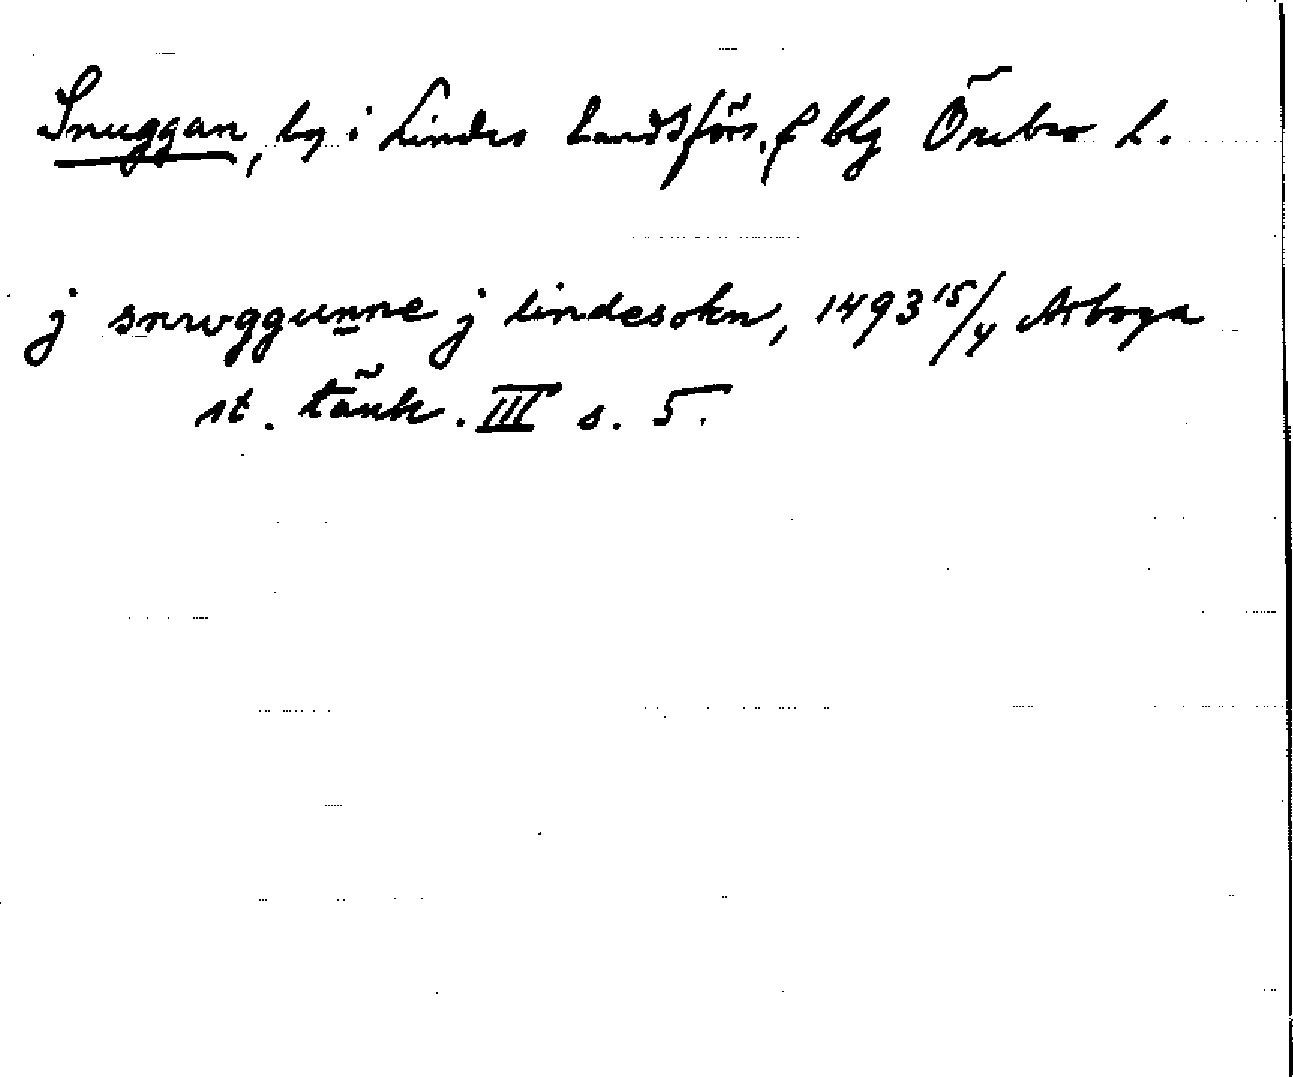 Snuggan, by i Lindes Landsförs. f blg Örebro L.
j snwggunne j lindesokn, 1493 15/4 Arboga
st. tänk. III s. 5.